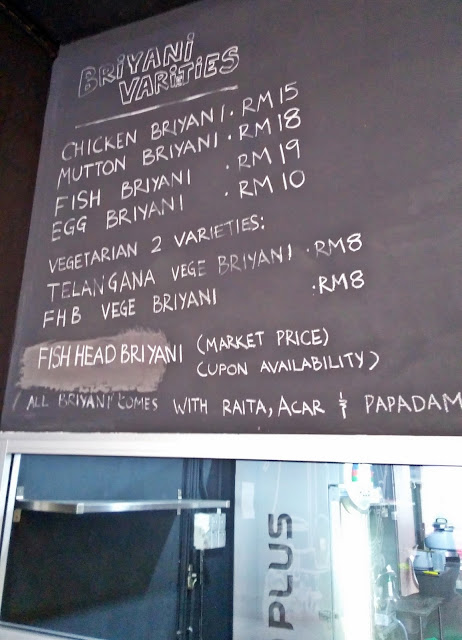 BRIYANI
VARITIES
CHICKEN BRIYANI. RM 15
MUTTON BRIYANI. RM 18
FISH BRIYANI . RM 19
EGG BRIYANI . RM 10
VEGETARIAN 2 VARIETIES:
TELANGANA VEGE BRIYANI . RM8
FHB VEGE BRIYANI : RM8
FISH HEAD BRIYANI (MARKET PRICE)
(UPON AVAILABILITY)
ALL BRIYANI COMES WITH RAITA, ACAR & PAPADAM
PLUS